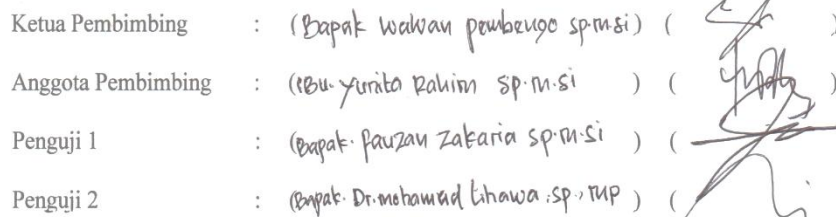 Ketua Pembimbing : (Bapak wawan pembengo sp.m.si) ( )
Anggota Pembimbing : (iBu. Yunita Rahim sp.m.si ) ( )
Penguji 1 : (Bapak. fauzan Zakaria sp.m.si ) (
Penguji 2 : (Bapak. Dr. mohamad Lihawa .sp., mp ) (